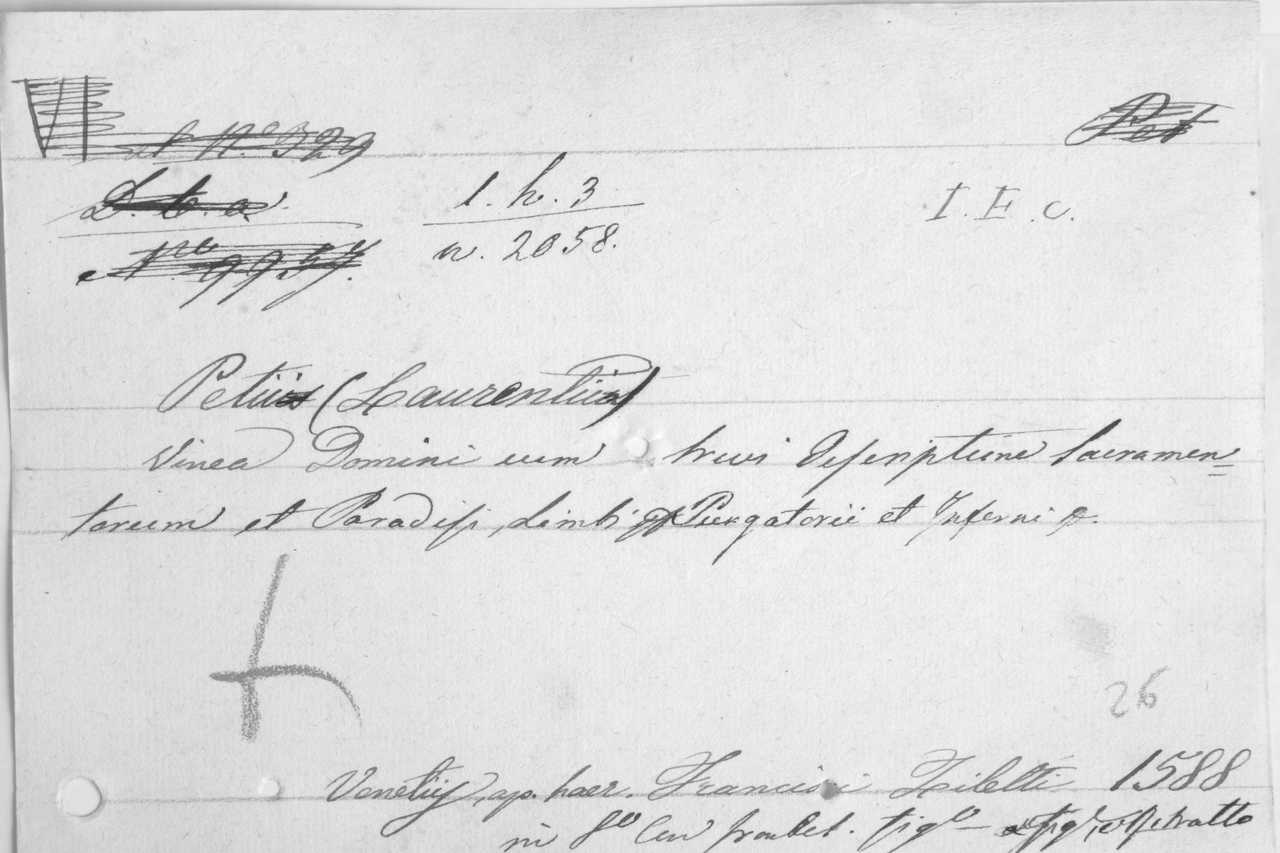 VI et Nº 329
Pet
D. b. a.
l. h. 3
I. E. c.
n. 2058.
Petiis (Laurentius)
Vinea Domini cum brevi descriptione Sacramen=
torum et Paradisi, Limbi Purgatorii et Inferni
26
Venetiis, ap. haer. Francisci Ziletti 1588
in 8º Con frontesp. figº e Ritratto